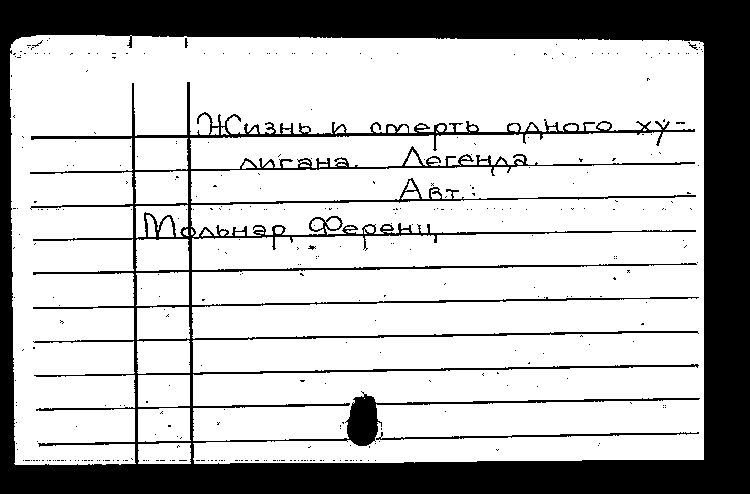 Жизнь и смерть одного ху-
лигана. Легенда.
Авт.:
Мольнар, Ференц